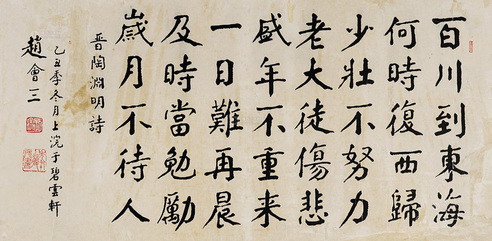 百川到東海
何時復西歸
少壯不努力
老大徒傷悲
盛年不重来
一日難再晨
及時當勉勵
歲月不待人
晉陶淵明詩
乙丑季冬月上浣于碧雲軒
趙會三